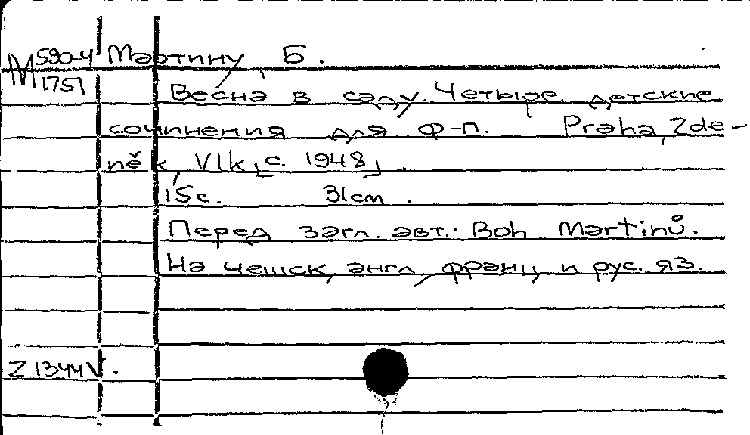 М 590-4 Мартину, Б.
1751 Весна в саду. Четыре детские
сочинения для ф-п. Praha, Zde-
něk Vlk, [с. 1948]
15с. 31см.
Перед загл. авт.: Boh Martinů.
На чешск, англ, франц и рус. яз.
Z 1344V.